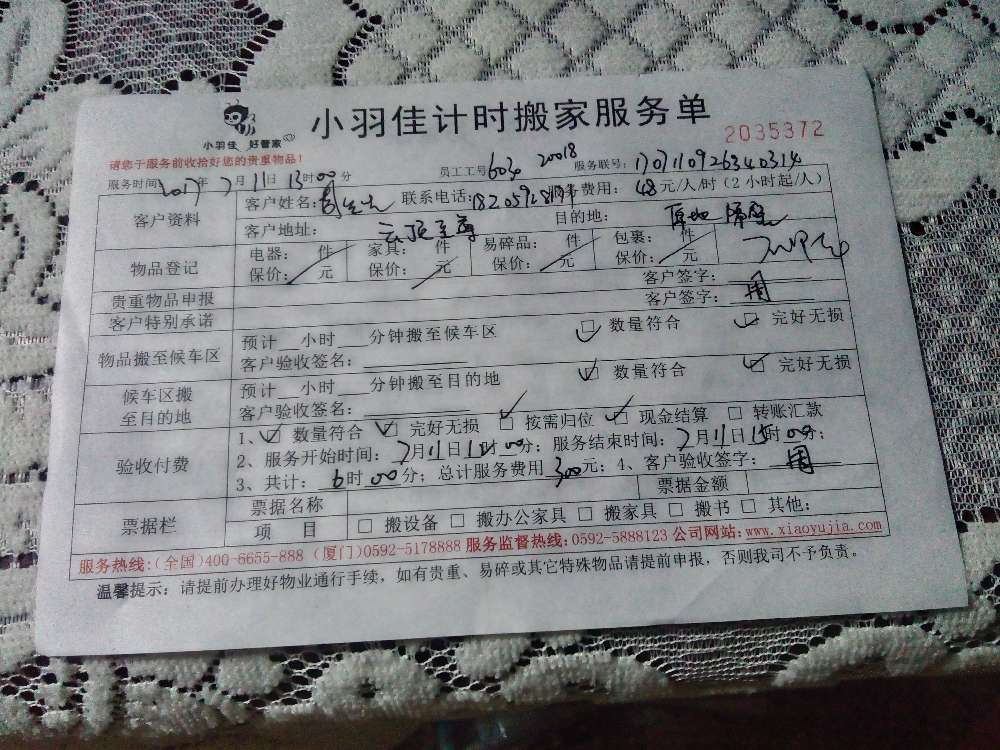 小羽佳 好管家
小羽佳计时搬家服务单
2035372
请您于服务前收拾好您的贵重物品!
服务时间: 2017年 7月 11日 13时00分 员工工号: 604 20018 服务联号: 170711092634 0314
客户资料
客户姓名: 联系电话: 服务费用: 48元/人/时(2小时起/人)
客户地址: 云顶至尊 目的地: 原地
物品登记
电器: 件 家具: 件 易碎品: 件 包裹: 件
保价: 元 保价: 元 保价: 元 保价: 元
贵重物品申报 客户签字:
客户特别承诺 客户签字: 周
物品搬至候车区
预计 小时 分钟搬至候车区 ☑ 数量符合 ☑ 完好无损
客户验收签名:
候车区搬至目的地
预计 小时 分钟搬至目的地 ☑ 数量符合 ☑ 完好无损
客户验收签名:
验收付费
1、☑ 数量符合 ☑ 完好无损 ☑ 按需归位 ☑ 现金结算 □ 转账汇款
2、服务开始时间: 7月11日 时00分; 服务结束时间: 7月11日15时00分;
3、共计: 6时00分; 总计服务费用 300元; 4、客户验收签字: 周
票据栏
票据名称 票据金额
项 目 □ 搬设备 □ 搬办公家具 □ 搬家具 □ 搬书 □ 其他:
服务热线:(全国)400-6655-888 (厦门)0592-5178888 服务监督热线:0592-5888123 公司网站:www.xiaoyujia.com
温馨提示: 请提前办理好物业通行手续, 如有贵重、易碎或其它特殊物品请提前申报, 否则我司不予负责。